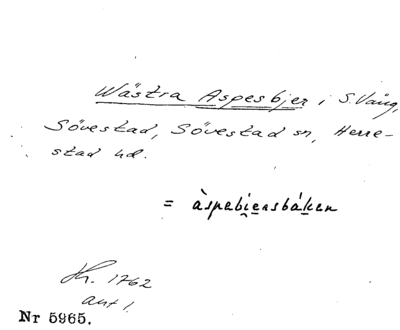 Wästra Aspesbjer i S. Vång,
Sövestad, Sövestad sn, Herre-
stad hd.
= àspebi̯ensbáken
1762
akt 1.
Nr 5965.